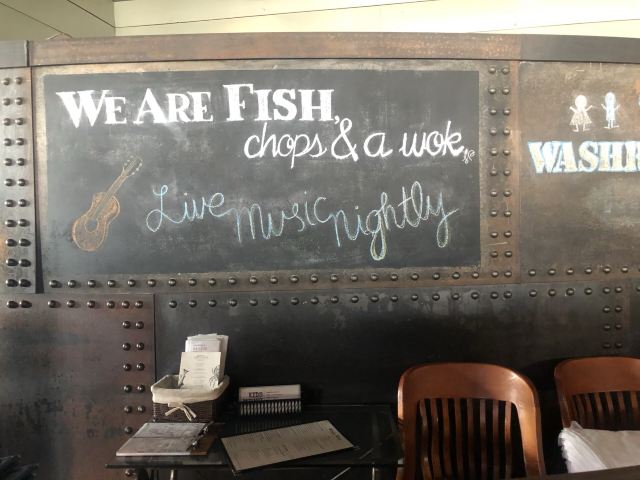 WE ARE FISH,
chops & a wok
Live music nightly
WASHR
KIDS